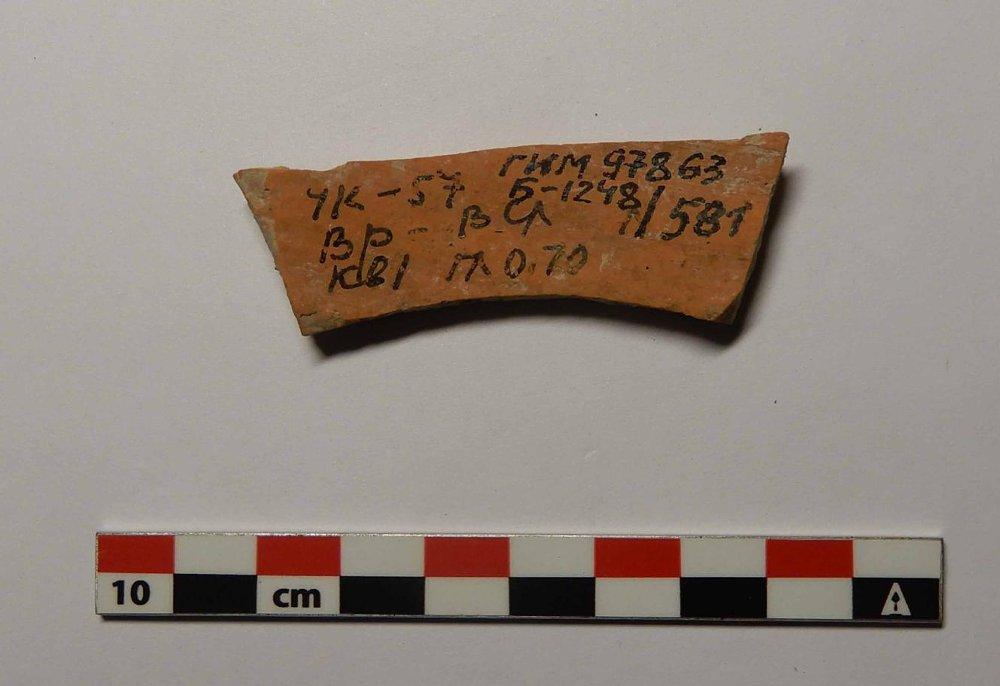 ГИМ 97863
ЧК-57 Б-1248/
ВР- В СЛ 1/581
Кв1 П 0.70
10 cm